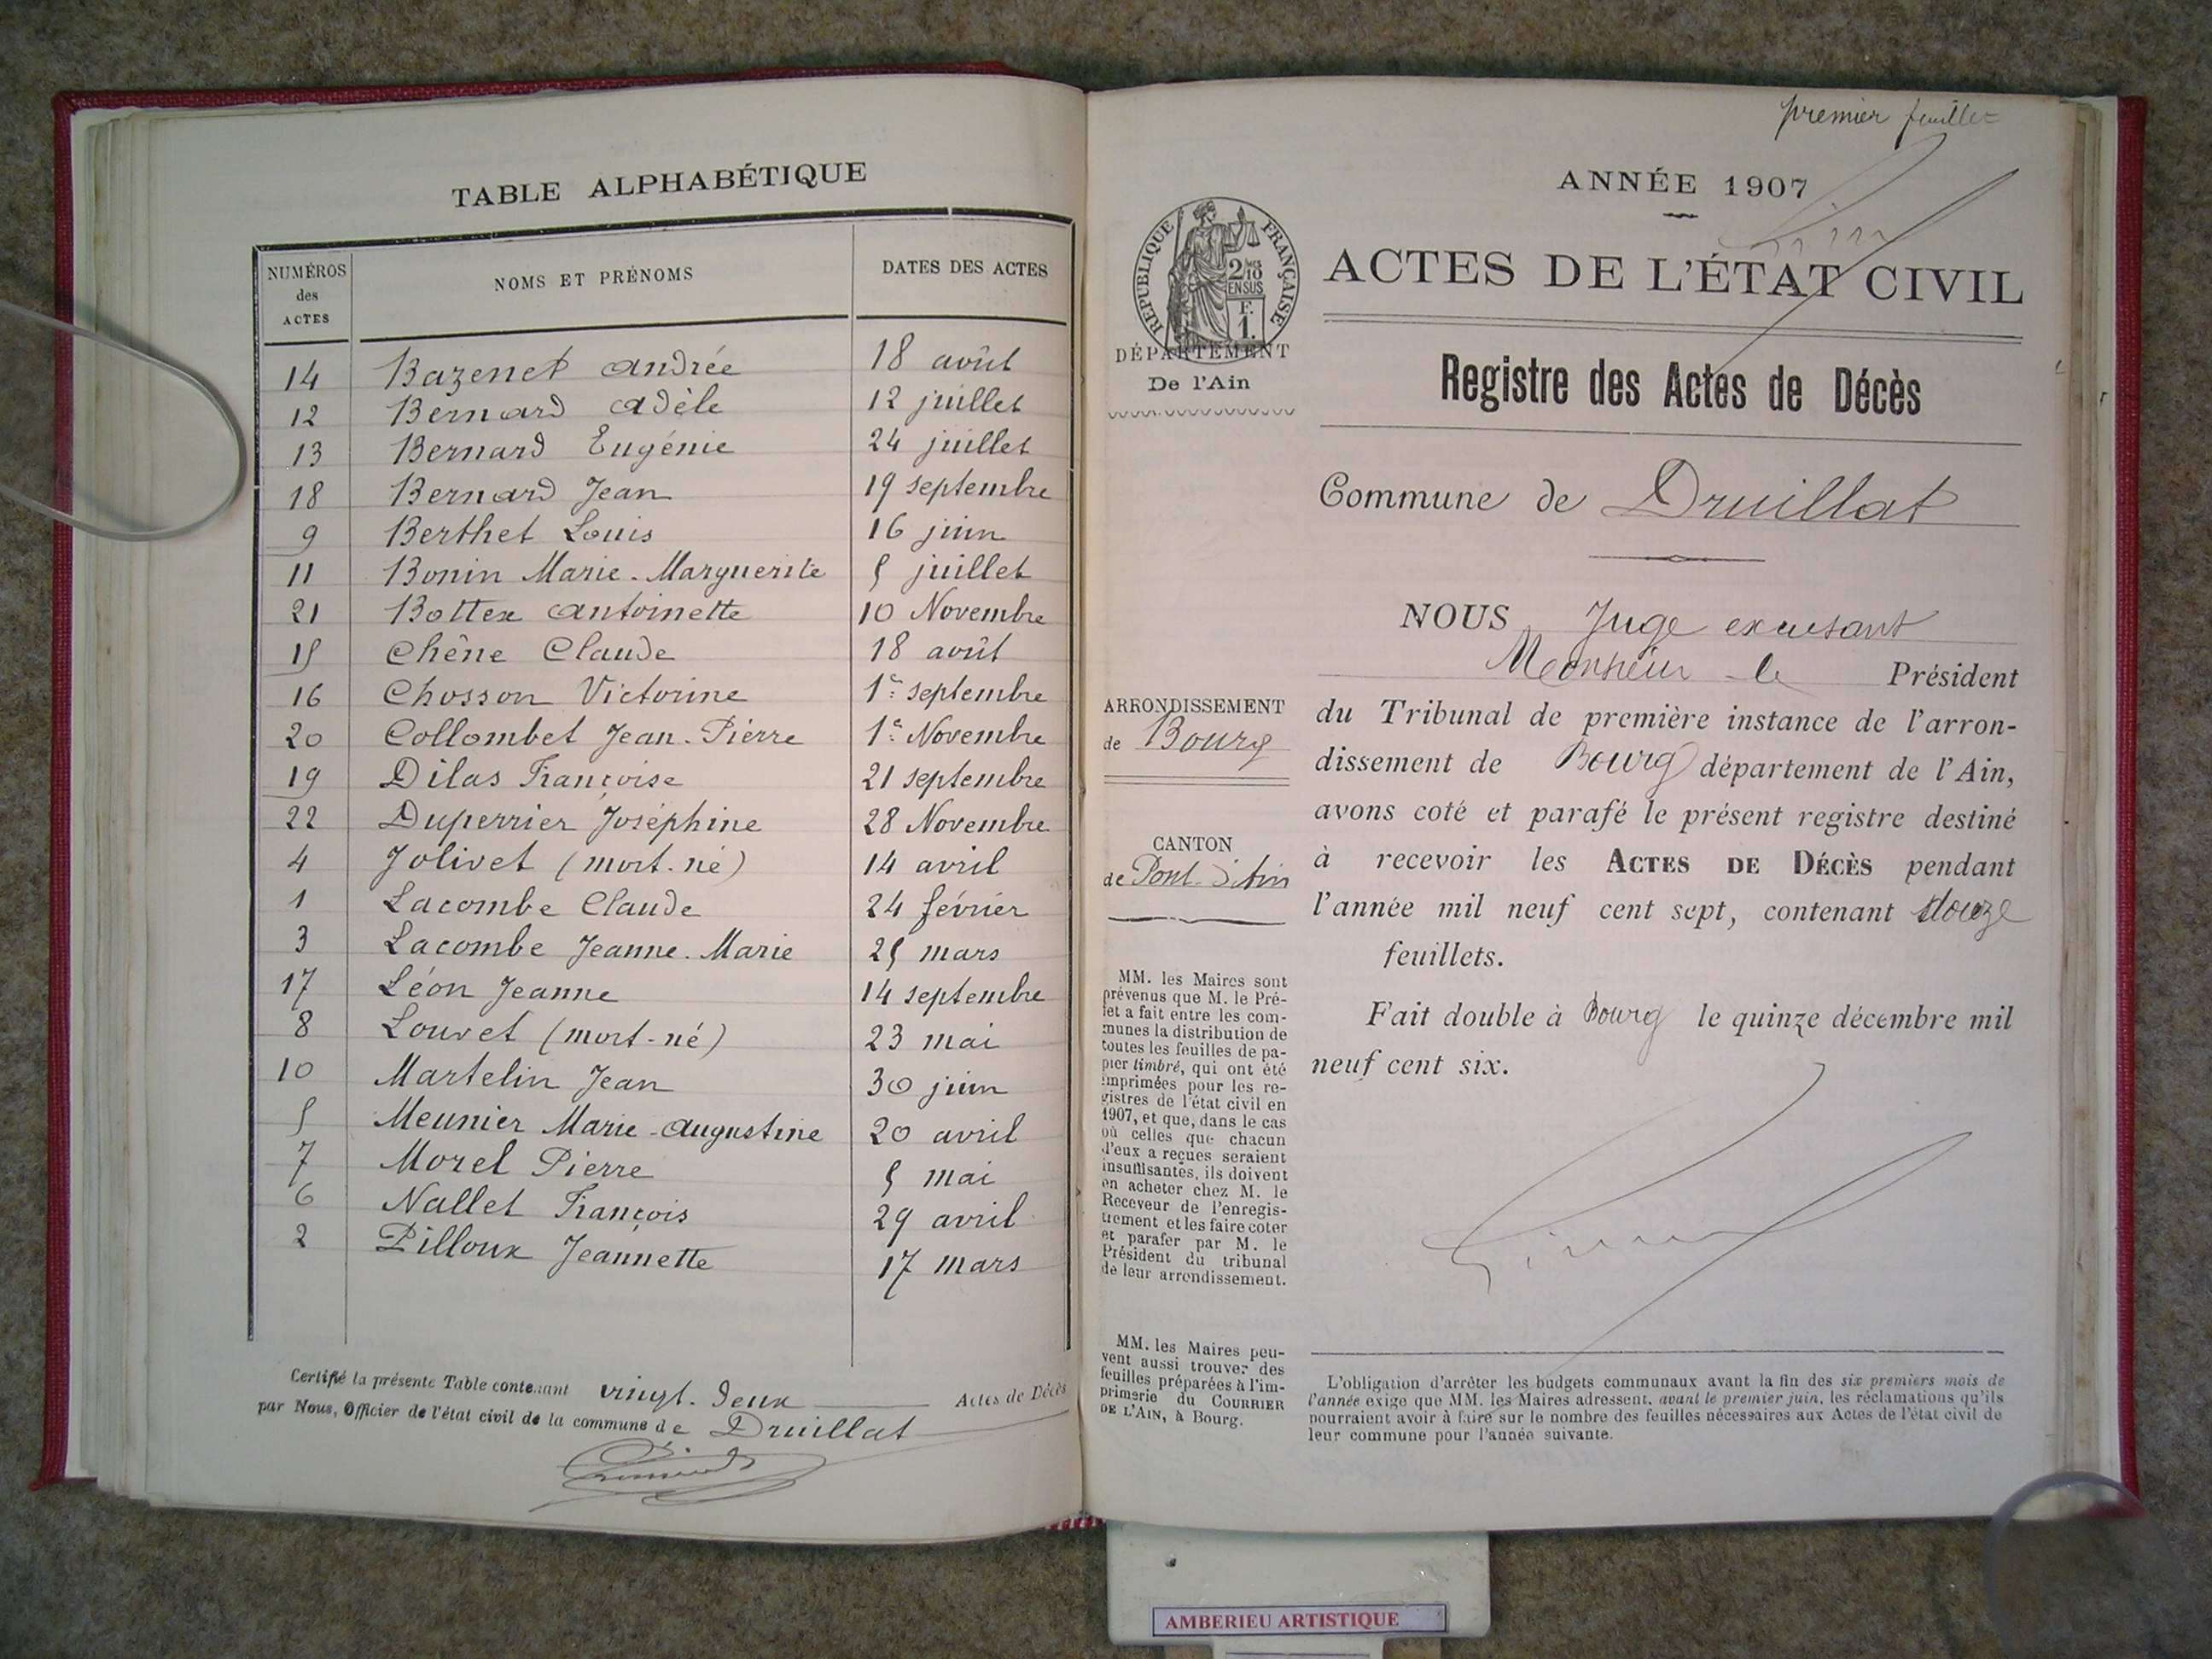 TABLE ALPHABÉTIQUE
NUMÉROS des ACTES
NOMS ET PRÉNOMS
DATES DES ACTES
14 Bazenet Andrée 18 août
12 Bernard Adèle 12 juillet
13 Bernard Eugénie 24 juillet
18 Bernard Jean 19 septembre
9 Berthet Louis 16 juin
11 Bonin Marie-Marguerite 5 juillet
21 Bottex Antoinette 10 Novembre
15 Chêne Claude 18 août
16 Chosson Victorine 1er septembre
20 Collombet Jean-Pierre 1er Novembre
19 Dilas Françoise 21 septembre
22 Duperrier Joséphine 28 Novembre
4 Jolivet (mort-né) 14 avril
1 Lacombe Claude 24 février
3 Lacombe Jeanne-Marie 25 mars
17 Léon Jeanne 14 septembre
8 Louvet (mort-né) 23 mai
10 Martelin Jean 30 juin
5 Meunier Marie-Augustine 20 avril
7 Morel Pierre 5 mai
6 Nallet François 29 avril
2 Pilloux Jeannette 17 mars
Certifié la présente Table contenant vingt-deux Actes de Décès
par Nous, Officier de l'état civil de la commune de Druillat
premier feuillet
ANNÉE 1907
ACTES DE L'ÉTAT CIVIL
RÉPUBLIQUE FRANÇAISE
2/10 EN SUS
F. 1.
DÉPARTEMENT
De l'Ain
Registre des Actes de Décès
Commune de Druillat
NOUS Juge excusant
Monsieur le Président
du Tribunal de première instance de l'arron-
dissement de Bourg département de l'Ain,
avons coté et parafé le présent registre destiné
à recevoir les ACTES DE DÉCÈS pendant
l'année mil neuf cent sept, contenant douze
feuillets.
Fait double à Bourg le quinze décembre mil
neuf cent six.
ARRONDISSEMENT
de Bourg
CANTON
de Pont-d'Ain
MM. les Maires sont
prévenus que M. le Pré-
fet a fait entre les com-
munes la distribution de
toutes les feuilles de pa-
pier timbré, qui ont été
imprimées pour les re-
gistres de l'état civil en
1907, et que, dans le cas
où celles que chacun
d'eux a reçues seraient
insuffisantes, ils doivent
en acheter chez M. le
Receveur de l'enregis-
trement et les faire coter
et parafer par M. le
Président du tribunal
de leur arrondissement.
MM. les Maires peu-
vent aussi trouver des
feuilles préparées à l'im-
primerie du COURRIER
DE L'AIN, à Bourg.
L'obligation d'arrêter les budgets communaux avant la fin des six premiers mois de
l'année exige que MM. les Maires adressent, avant le premier juin, les réclamations qu'ils
pourraient avoir à faire sur le nombre des feuilles nécessaires aux Actes de l'état civil de
leur commune pour l'année suivante.
AMBERIEU ARTISTIQUE